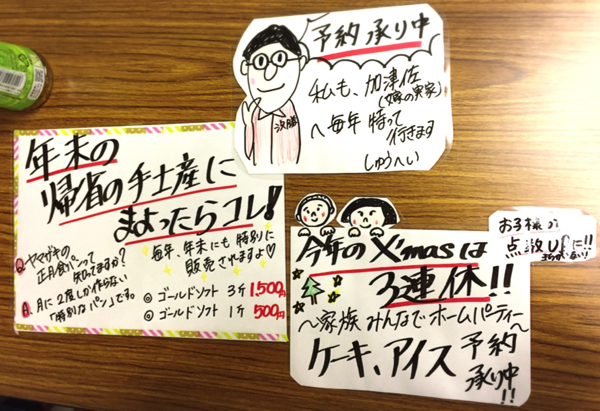 予約承り中
私も、加津佐
(嫁の実家)
へ毎年持って
行きます
しゅうへい
年末の
帰省の手土産に
まよったらコレ!
毎年、年末にも特別に
販売されますよ♡
Q ヤマザキの
正月食パンって
知ってますか?
A、月に2度しか作らない
「特別なパン」です。
◎ ゴールドソフト 3斤 1,500円
◎ ゴールドソフト 1斤 500円
今年のX'masは
3連休!!
〜家族みんなでホームパーティー〜
ケーキ、アイス 予約
承り中!!
お子様の
点数UPに!!